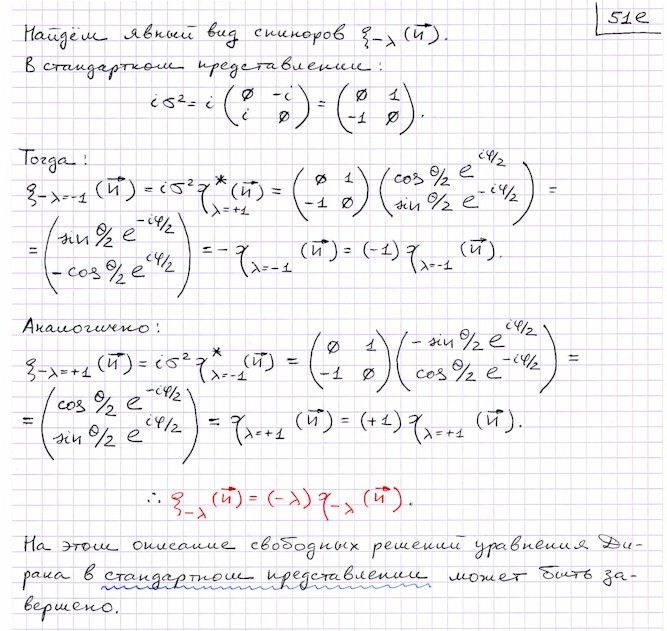 51e
Найдём явный вид спиноров ξ_{-λ}(n⃗).
В стандартном представлении:
iσ² = i (0 -i; i 0) = (0 1; -1 0).
Тогда:
ξ_{-λ=-1}(n⃗) = iσ² χ*_{λ=+1}(n⃗) = (0 1; -1 0) (cos θ/2 e^{iφ/2}; sin θ/2 e^{-iφ/2}) =
= (sin θ/2 e^{-iφ/2}; -cos θ/2 e^{iφ/2}) = - χ_{λ=-1}(n⃗) = (-1) χ_{λ=-1}(n⃗).
Аналогично:
ξ_{-λ=+1}(n⃗) = iσ² χ*_{λ=-1}(n⃗) = (0 1; -1 0) (-sin θ/2 e^{iφ/2}; cos θ/2 e^{-iφ/2}) =
= (cos θ/2 e^{-iφ/2}; sin θ/2 e^{iφ/2}) = χ_{λ=+1}(n⃗) = (+1) χ_{λ=+1}(n⃗).
∴ ξ_{-λ}(n⃗) = (-λ) χ_{-λ}(n⃗).
На этом описание свободных решений уравнения Ди-
рака в стандартном представлении может быть за-
вершено.